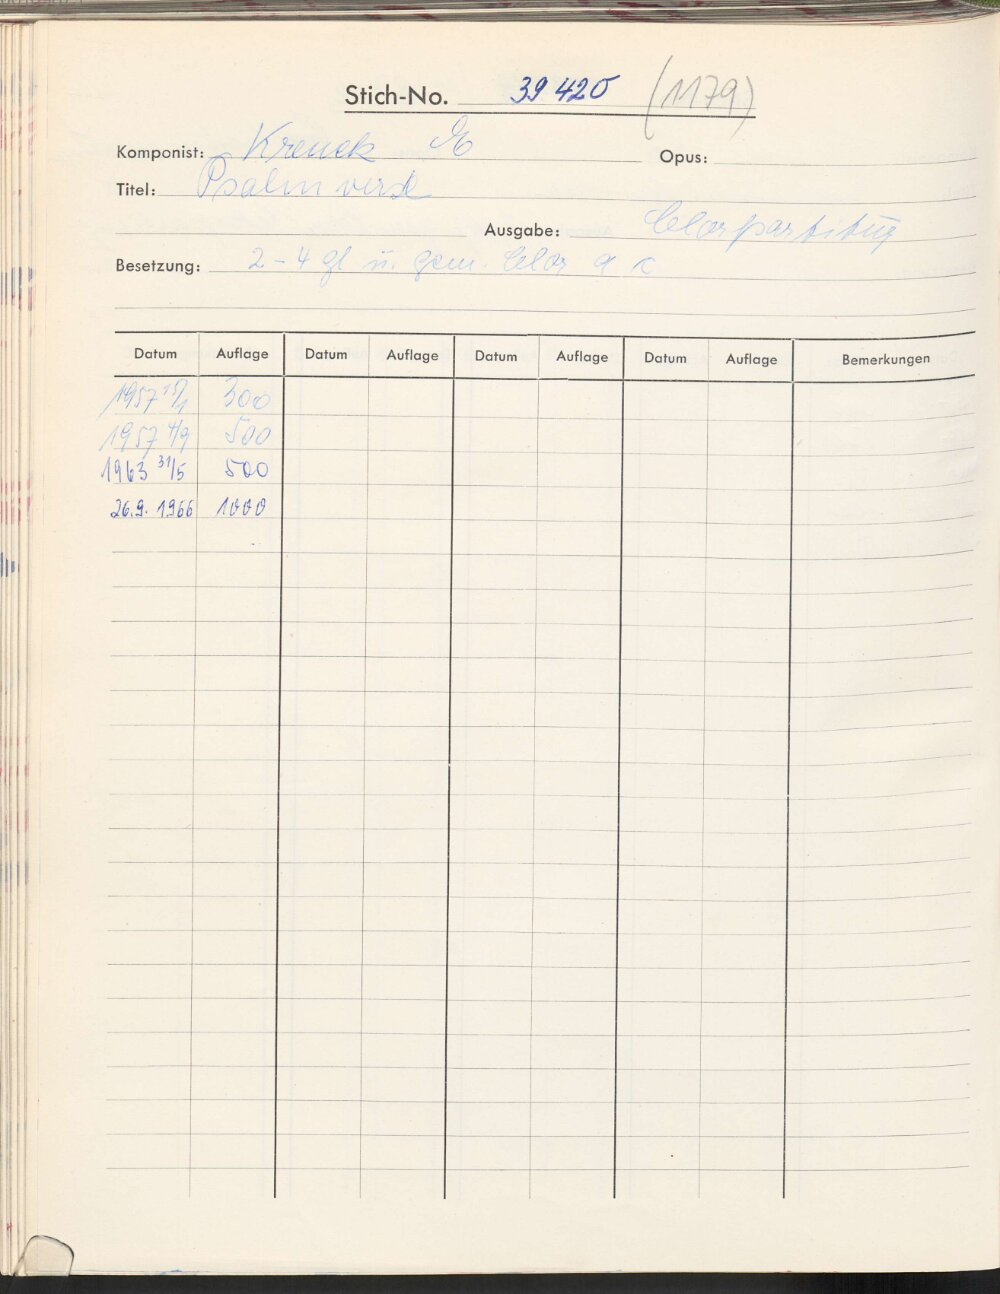 Stich-No. 39 420 (1179)
Komponist: Krenek E Opus:
Titel: Psalmverse
Ausgabe: Chorpartitur
Besetzung: 2-4 gl u. gem. Chor a c
Datum Auflage Datum Auflage Datum Auflage Datum Auflage Bemerkungen
1957 15/1 300
1957 4/9 500
1963 31/5 500
26.9. 1966 1000